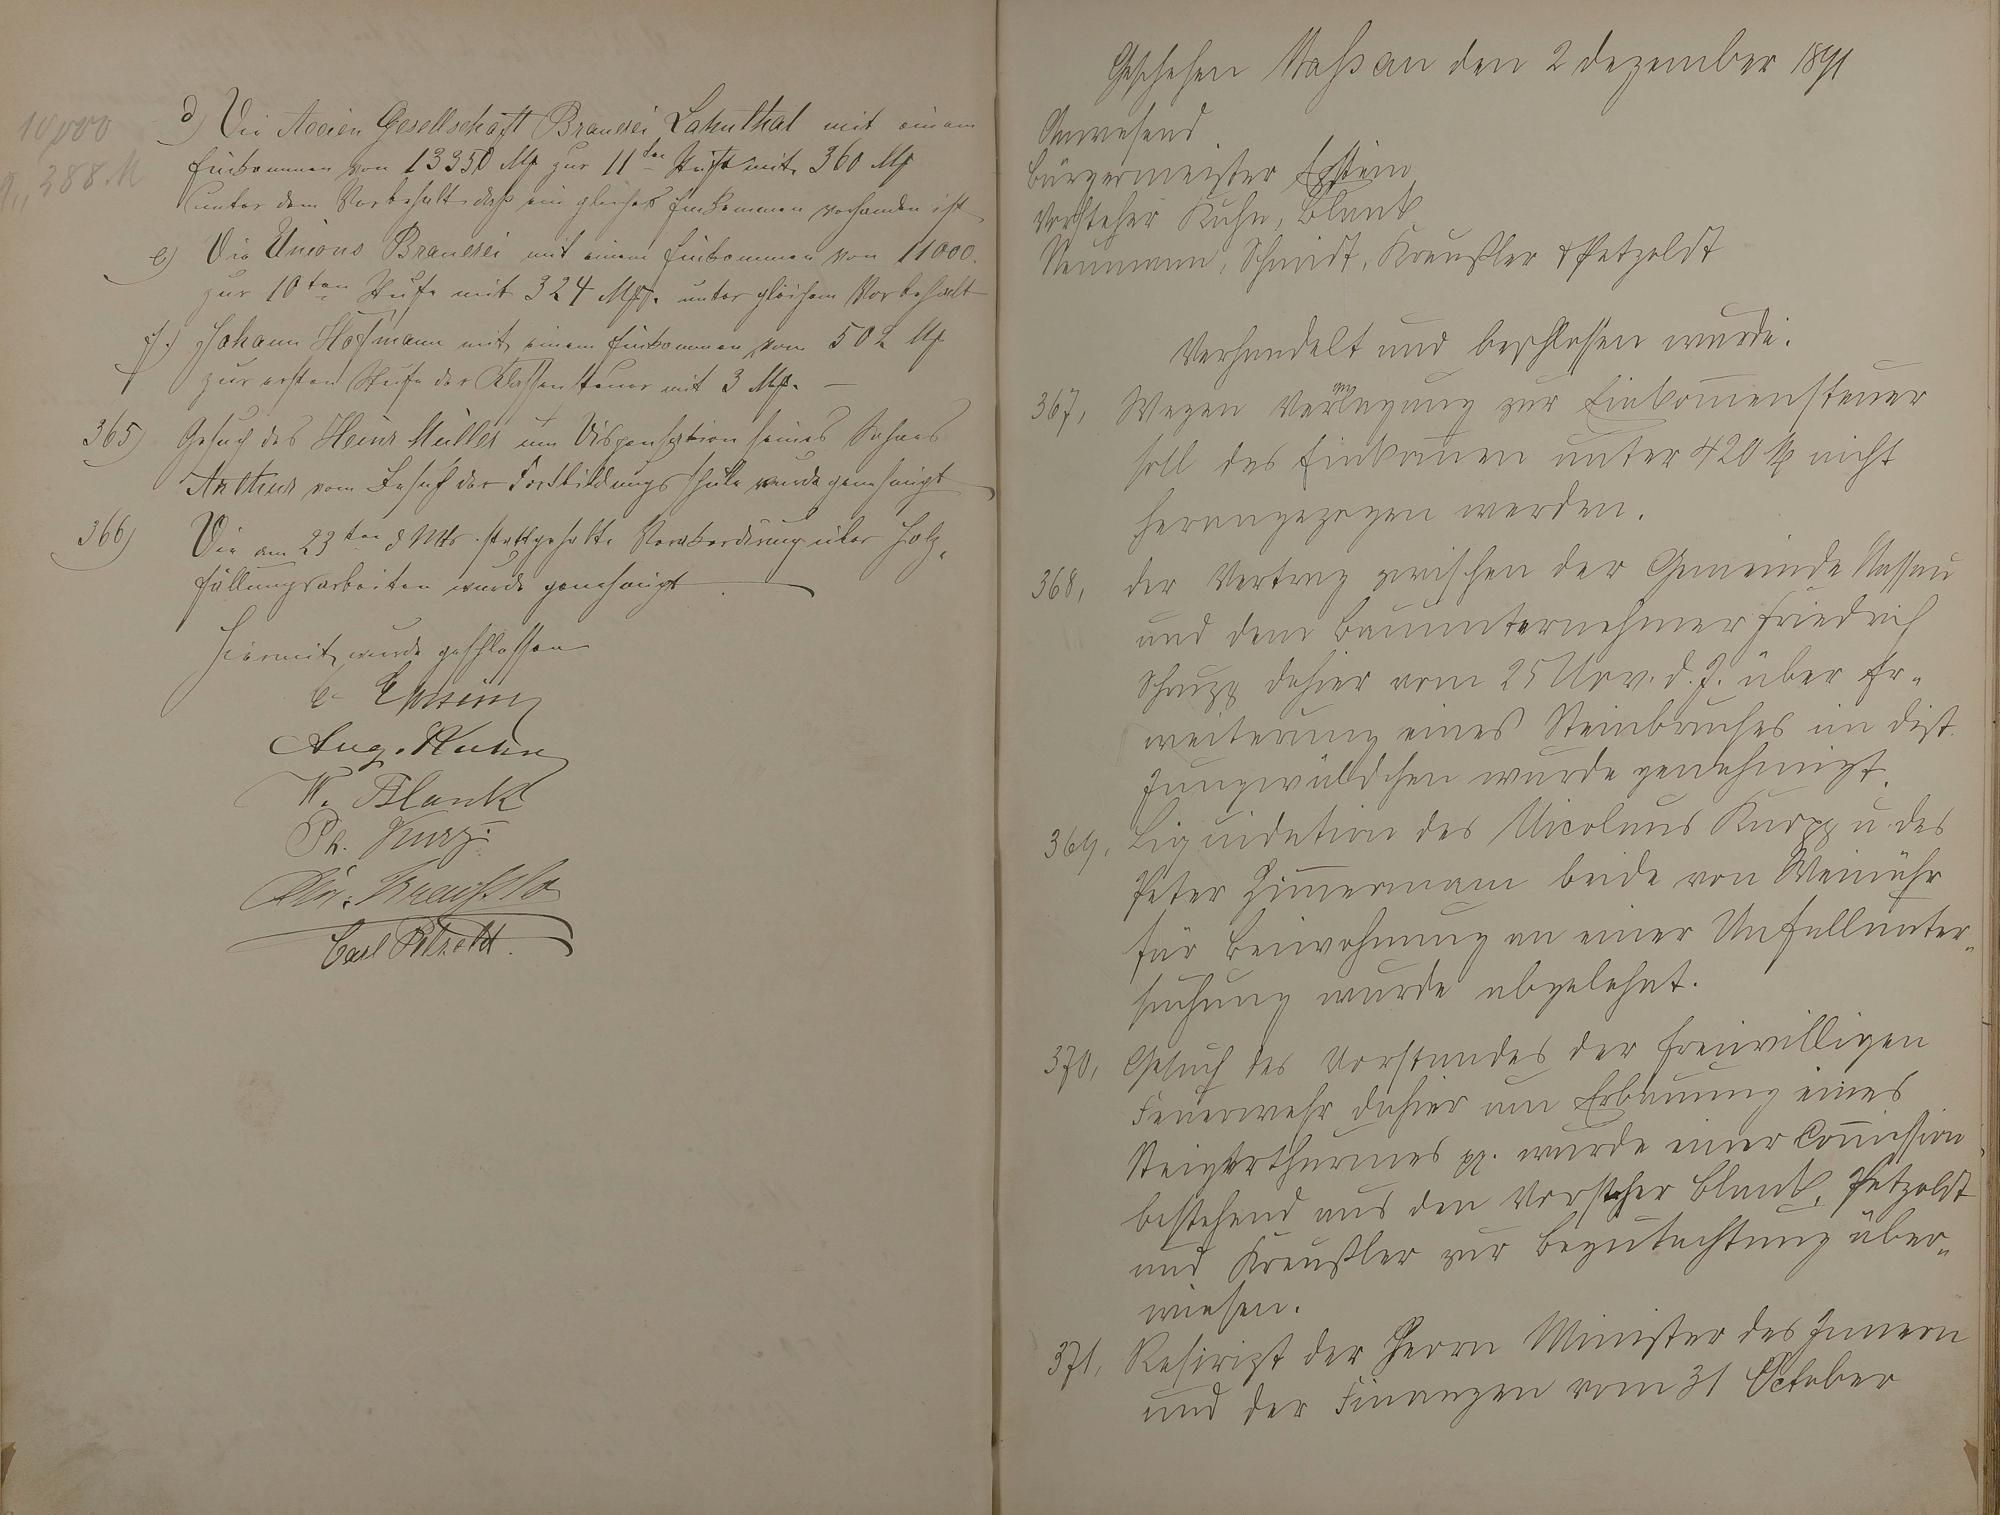 10,000
388 M
d) Die Accien Gesellschaft Brauerei Lahnthal mit einem
Einkommen von 13350 Mk zur 11ten Stufe mit 360 Mk
unter dem Vorbehalt daß ein gleiches Einkommen vorhanden ist
e) Die Unions Brauerei mit einem Einkommen von 11000.
zur 10ten Stufe mit 324 Mk. unter gleichem Vorbehalt
f.) Johann Hofmann mit einem Einkommen von 502 Mk
zur ersten Stufe der Klassensteuer mit 3 Mk. —
365) Gesuch des Heinr Müller um Dispensation seines Sohnes
Arthur vom Besuch der Fortbildungsschule wurde genehmigt
366) Die am 23ten d Mts. stattgehabte Verakordirung über Holz„
fällungsarbeiten wurde genehmigt
Hiermit wurde geschlossen
Epstein
Aug. Kuhn
W. Blank
Ph. Kurz.
Chr. Kreußler
Carl Petzoldt.
Geschehen Nassau den 2 Dezember 1891
Anwesend
Bürgermeister Epstein
Vorsteher Kuhn, Blank
Neumann, Schmidt, Kreußler & Petzoldt
Verhandelt und beschlossen wurde:
367, Wegen Veranlagung zur Einkom̄ensteuer
soll das Einkom̄en unter 420 M nicht
herangezogen werden.
368, der Vertrag zwischen der Gemeinde Nassau
und dem Bauunternehmer Friedrich
Schrupp dahier vom 25 Nov. d. J. über Er„
weiterung eines Steinbruches im Dist.
Jungwäldchen wurde genehmigt.
369, Liquidation des Nicolaus Knopp u. des
Peter Zim̄ermann beide von Weinähr
für Beiwohnung an einer Unfallunter„
suchung wurde abgelehnt.
370, Gesuch des Vorstandes der freiwilligen
Feuerwehr dahier um Erbauung eines
Steigerthurmes pp. wurde einer Com̄ission
bestehend aus den Vorsteher Blank, Petzoldt
und Kreußler zur Begutachtung über„
wiesen.
371, Reskript der Herrn Minister des Innern
und der Finanzen vom 31 October